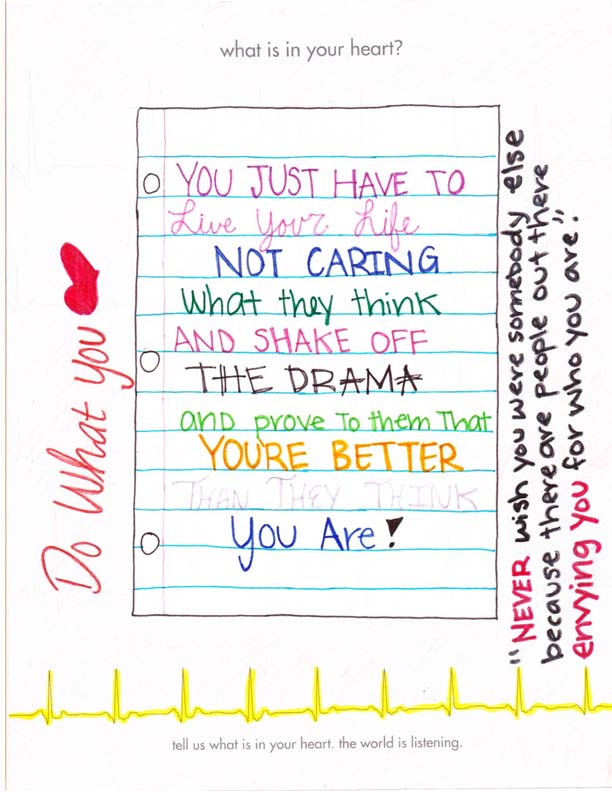 what is in your heart?
YOU JUST HAVE TO
Live Your Life
NOT CARING
What they think
AND SHAKE OFF
THE DRAMA
and prove To them That
YOU'RE BETTER
THAN THEY THINK
You Are!
Do What you
"NEVER wish you were somebody else
because there are people out there
envying you for who you are."
tell us what is in your heart. the world is listening.